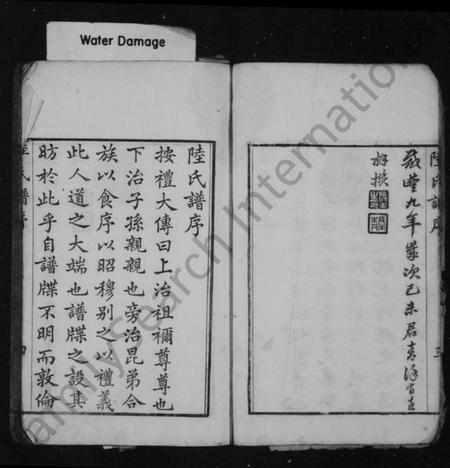 Water Damage
陸氏譜序
三
咸豐九年歲次己未
陸氏譜序
按禮大傳曰上治祖禰尊尊也
下治子孫親親也旁治昆弟合
族以食序以昭穆別之以禮義
此人道之大端也譜牒之設其
昉於此乎自譜牒不明而敦倫
陸氏譜序
四
FamilySearch International